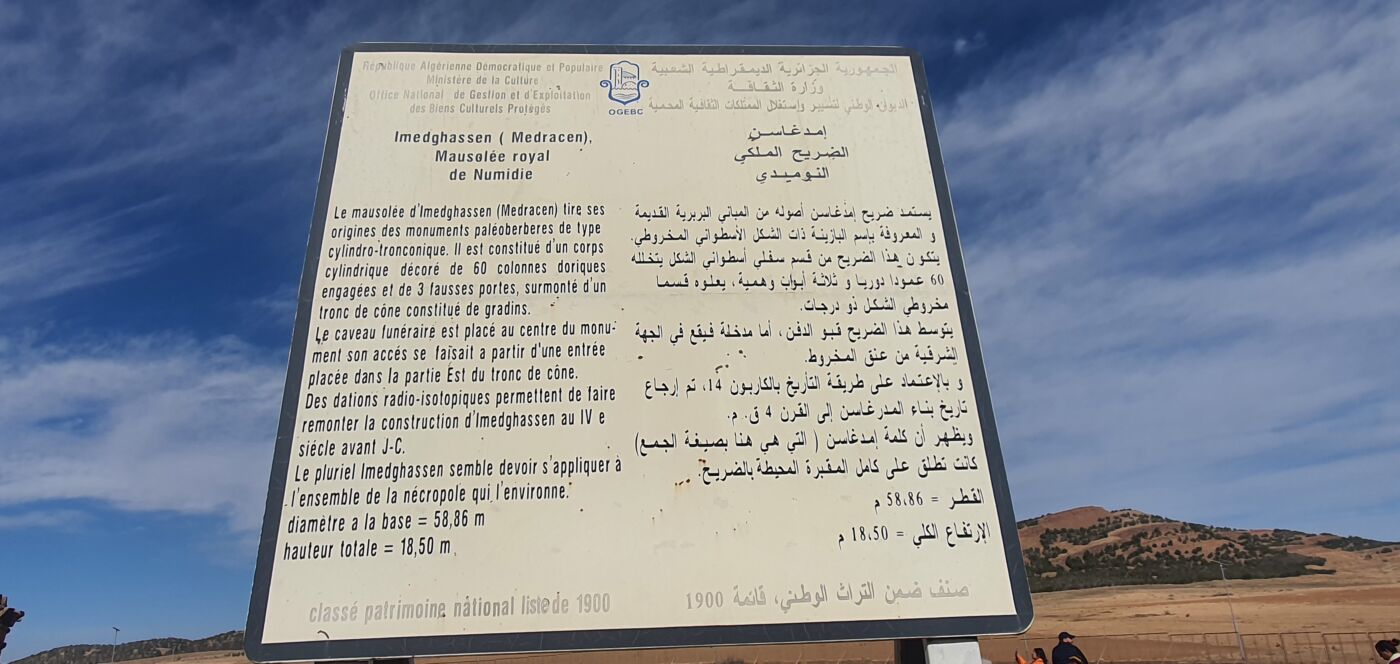 République Algérienne Démocratique et Populaire
Ministère de la Culture
Office National de Gestion et d'Exploitation
des Biens Culturels Protégés
OGEBC
الجمهورية الجزائرية الديمقراطية الشعبية
وزارة الثقافة
الديوان الوطني لتسيير وإستغلال الممتلكات الثقافية المحمية
Imedghassen ( Medracen),
Mausolée royal
de Numidie
Le mausolée d'Imedghassen (Medracen) tire ses
origines des monuments paléoberberes de type
cylindro-tronconique. Il est constitué d'un corps
cylindrique décoré de 60 colonnes doriques
engagées et de 3 fausses portes, surmonté d'un
tronc de cône constitué de gradins.
Le caveau funéraire est placé au centre du monu-
ment son accés se faisait a partir d'une entrée
placée dans la partie Est du tronc de cône.
Des dations radio-isotopiques permettent de faire
remonter la construction d'Imedghassen au IV e
siécle avant J-C.
Le pluriel Imedghassen semble devoir s'appliquer à
l'ensemble de la nécropole qui l'environne.
diamètre a la base = 58,86 m
hauteur totale = 18,50 m
classé patrimoine national liste de 1900
إمدغاسن
الضريح الملكي
النوميدي
يستمد ضريح إمدغاسن أصوله من المباني البربرية القديمة
و المعروفة بإسم البازينة ذات الشكل الأسطواني المخروطي.
يتكون هذا الضريح من قسم سفلي أسطواني الشكل يتخلله
60 عمودا دوريا و ثلاثة أبواب وهمية، يعلوه قسما
مخروطي الشكل ذو درجات.
يتوسط هذا الضريح قبو الدفن، أما مدخلة فيقع في الجهة
الشرقية من عنق المخروط.
و بالإعتماد على طريقة التأريخ بالكاربون 14، تم إرجاع
تاريخ بناء المدرغاسن إلى القرن 4 ق. م.
ويظهر أن كلمة إمدغاسن ( التي هي هنا بصيغة الجمع)
كانت تطلق على كامل المقبرة المحيطة بالضريح.
القطر = 58،86 م
الإرتفاع الكلي = 18،50 م
صنف ضمن التراث الوطني، قائمة 1900